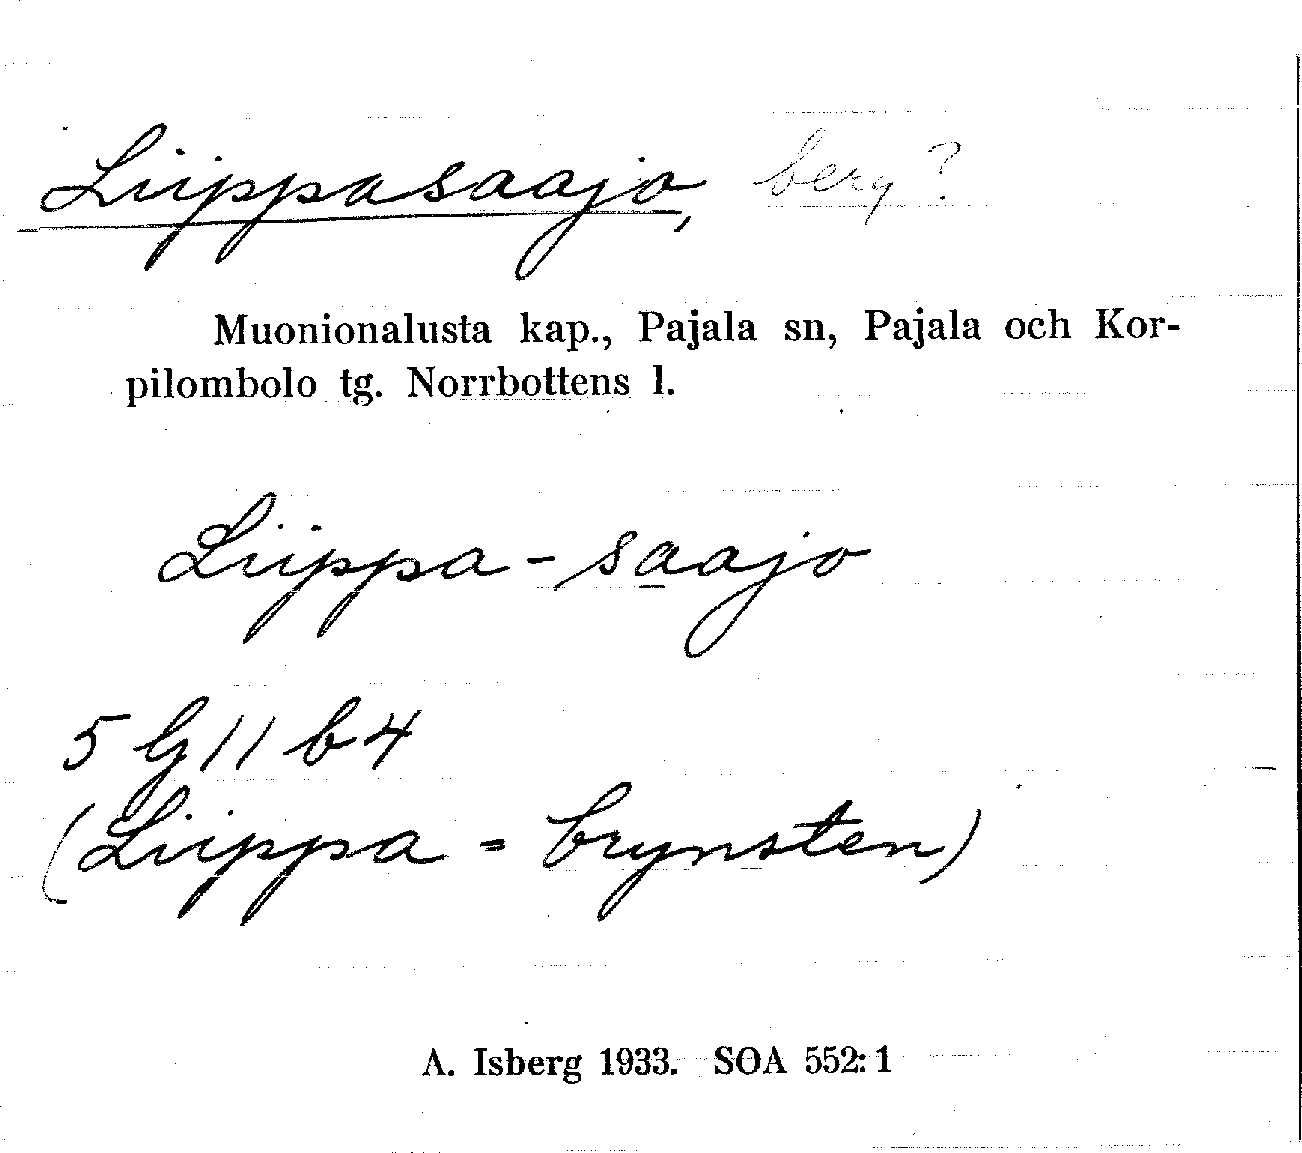 Liippasaajo, berg?
Muonionalusta kap., Pajala sn, Pajala och Kor-
pilombolo tg. Norrbottens l.
Liippa-saajo
5 G 11 b 4
(Liippa = brynsten)
A. Isberg 1933. SOA 552:1